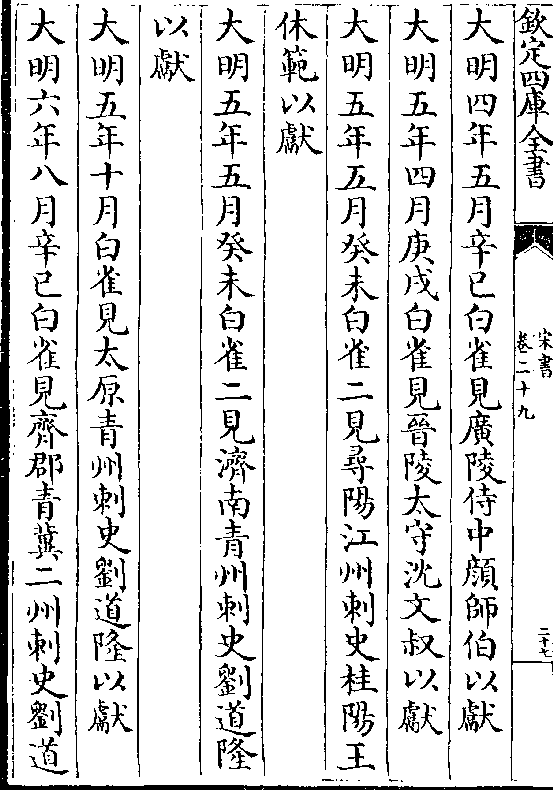 欽定四庫全書
宋書
卷二十九
二十七
大明四年五月辛巳白雀見廣陵侍中顔師伯以獻
大明五年四月庚戌白雀見晉陵太守沈文叔以獻
大明五年五月癸未白雀二見尋陽江州刺史桂陽王
休範以獻
大明五年五月癸未白雀二見濟南青州刺史劉道隆
以獻
大明五年十月白雀見太原青州刺史劉道隆以獻
大明六年八月辛巳白雀見齊郡青冀二州刺史劉道